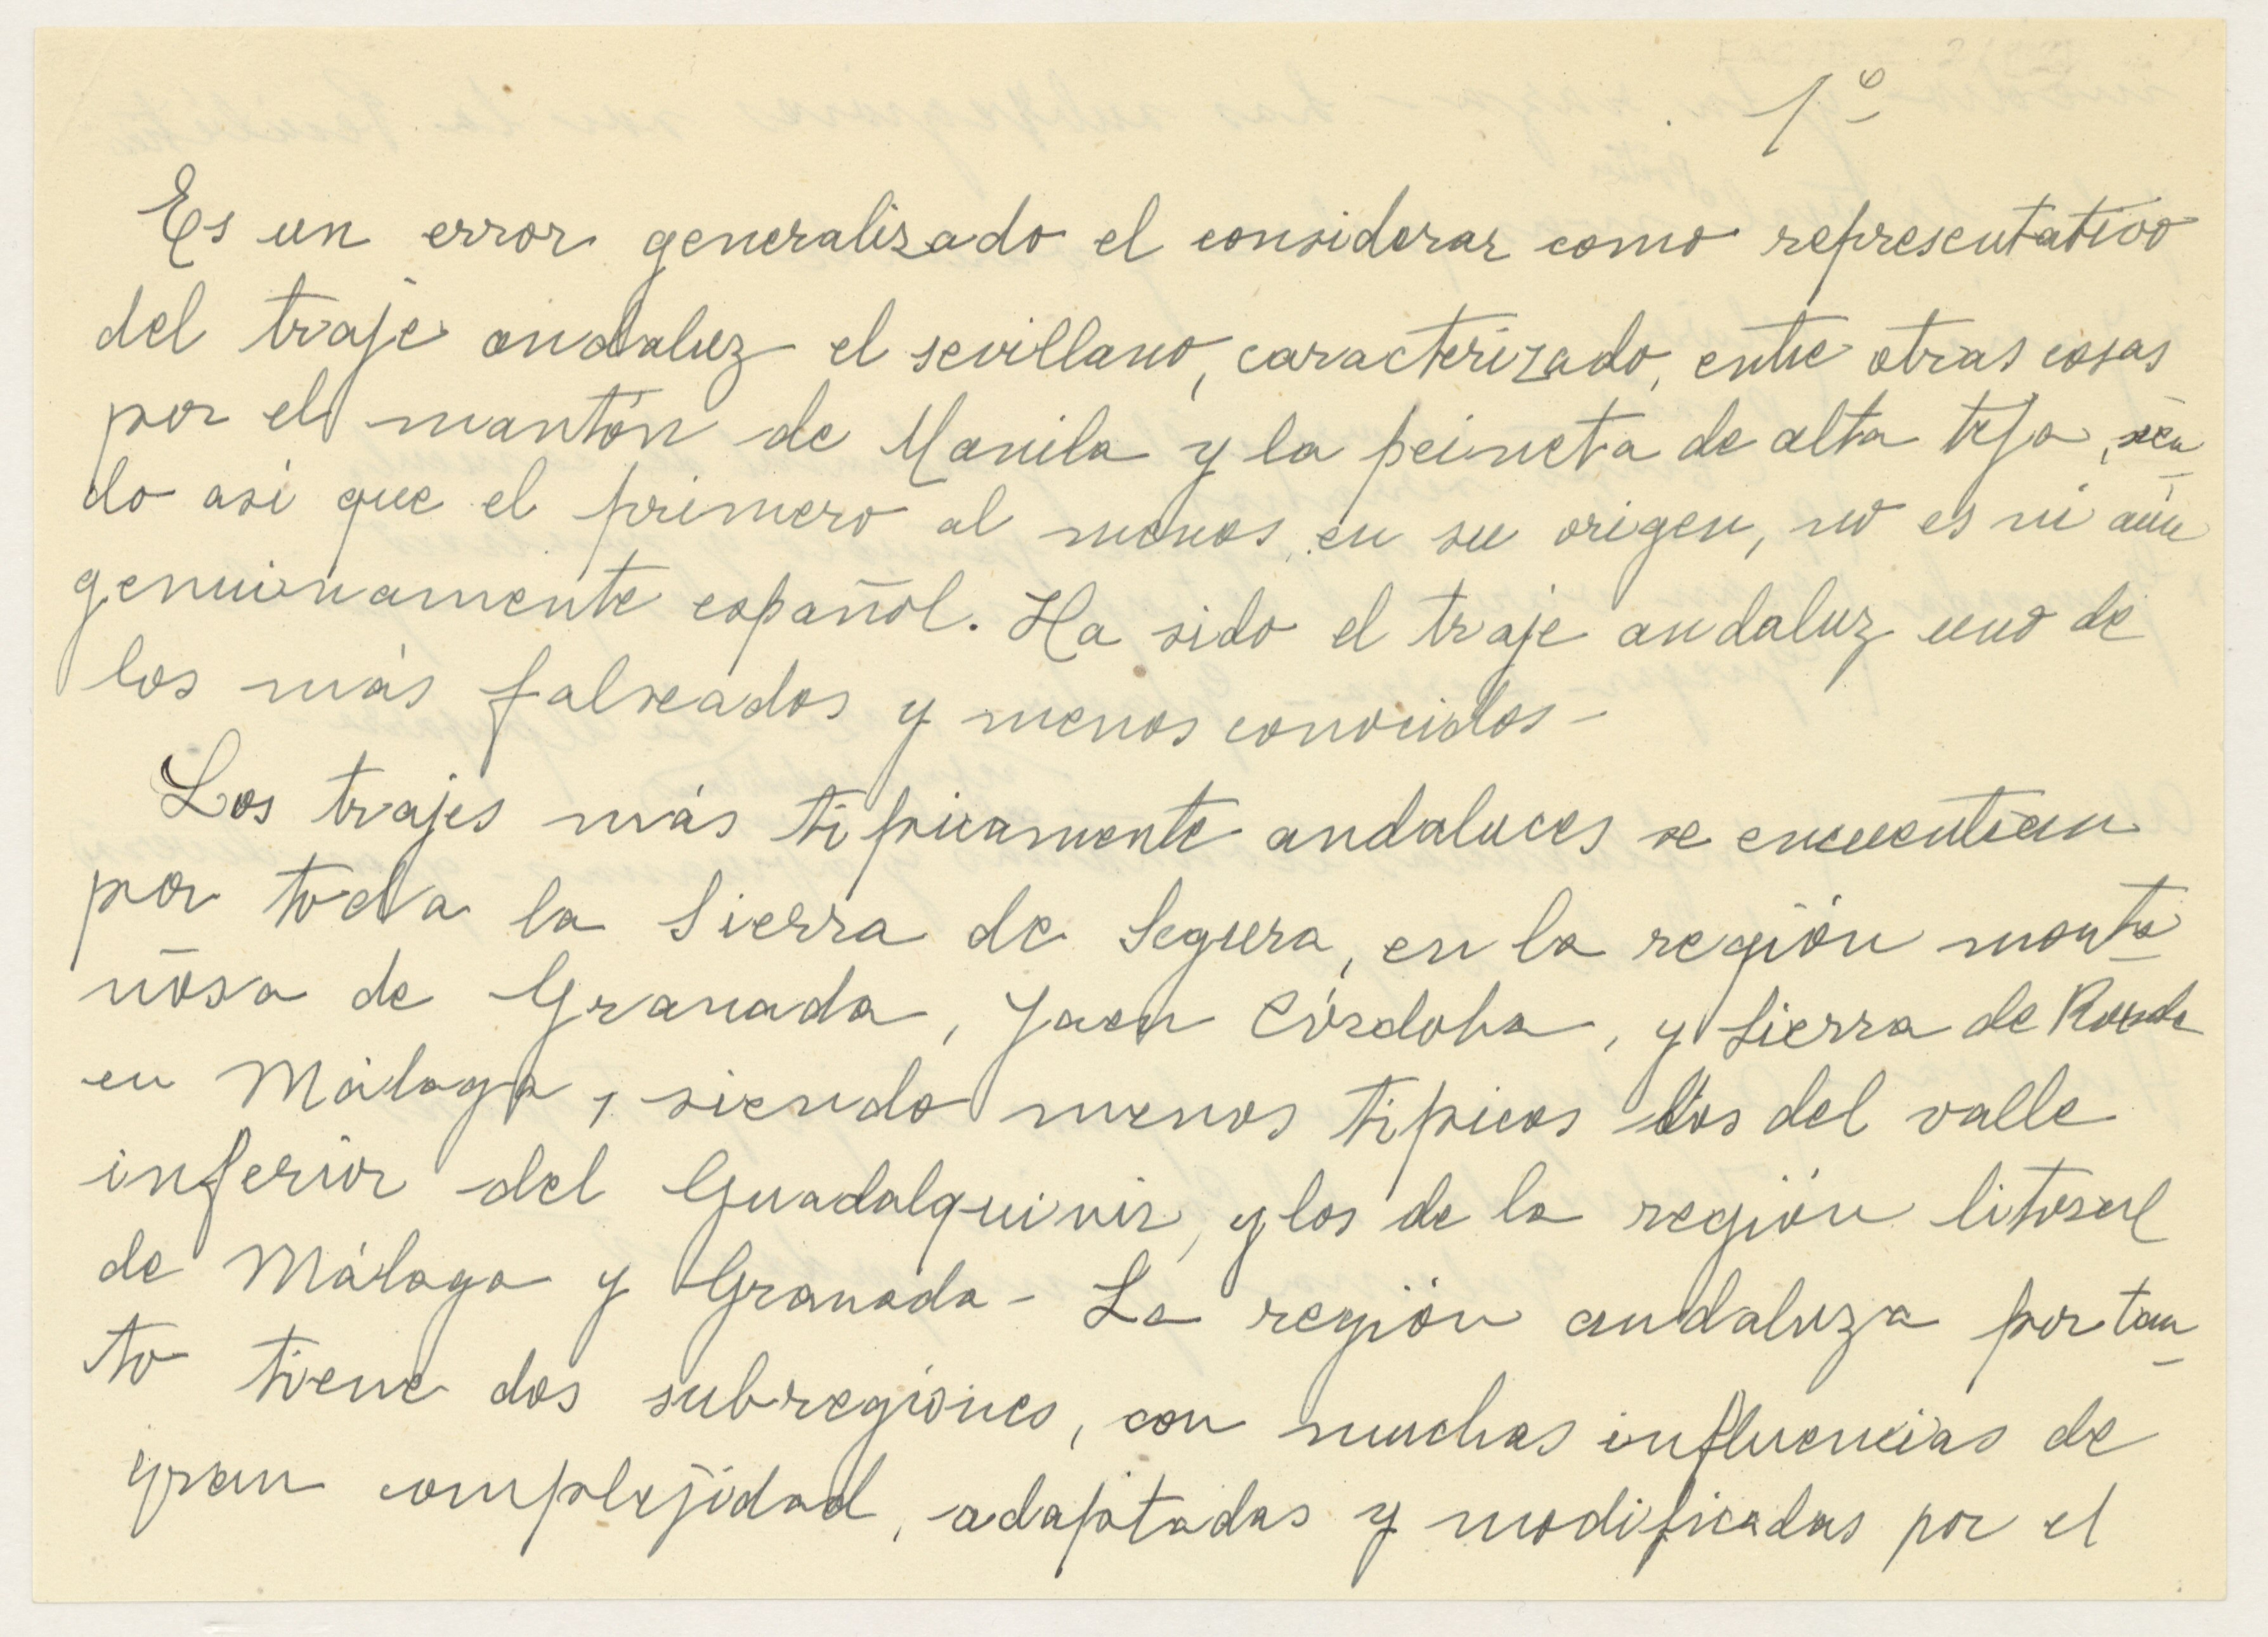 1º
Es un error generalizado el considerar como representativo
del traje andaluz el sevillano, caracterizado, entre otras cosas
por el mantón de Manila y la peineta de alta teja, sien
do asi que el primero al menos, en su origen, no es ni aún
genuinamente español. Ha sido el traje andaluz uno de
los más falseados y menos conocidos-
Los trajes más tipicamente andaluces se encuentran
por toda la Sierra de Segura, en la región monta
ñosa de Granada, Jaen Córdoba, y Sierra de Ronda
en Málaga, siendo menos tipicos los del valle
inferior del Guadalquivir, y los de la región litoral
de Málaga y Granada- La región andaluza por tan
to tiene dos subregiones, con muchas influencias de
gran complejidad, adaptadas y modificadas por el